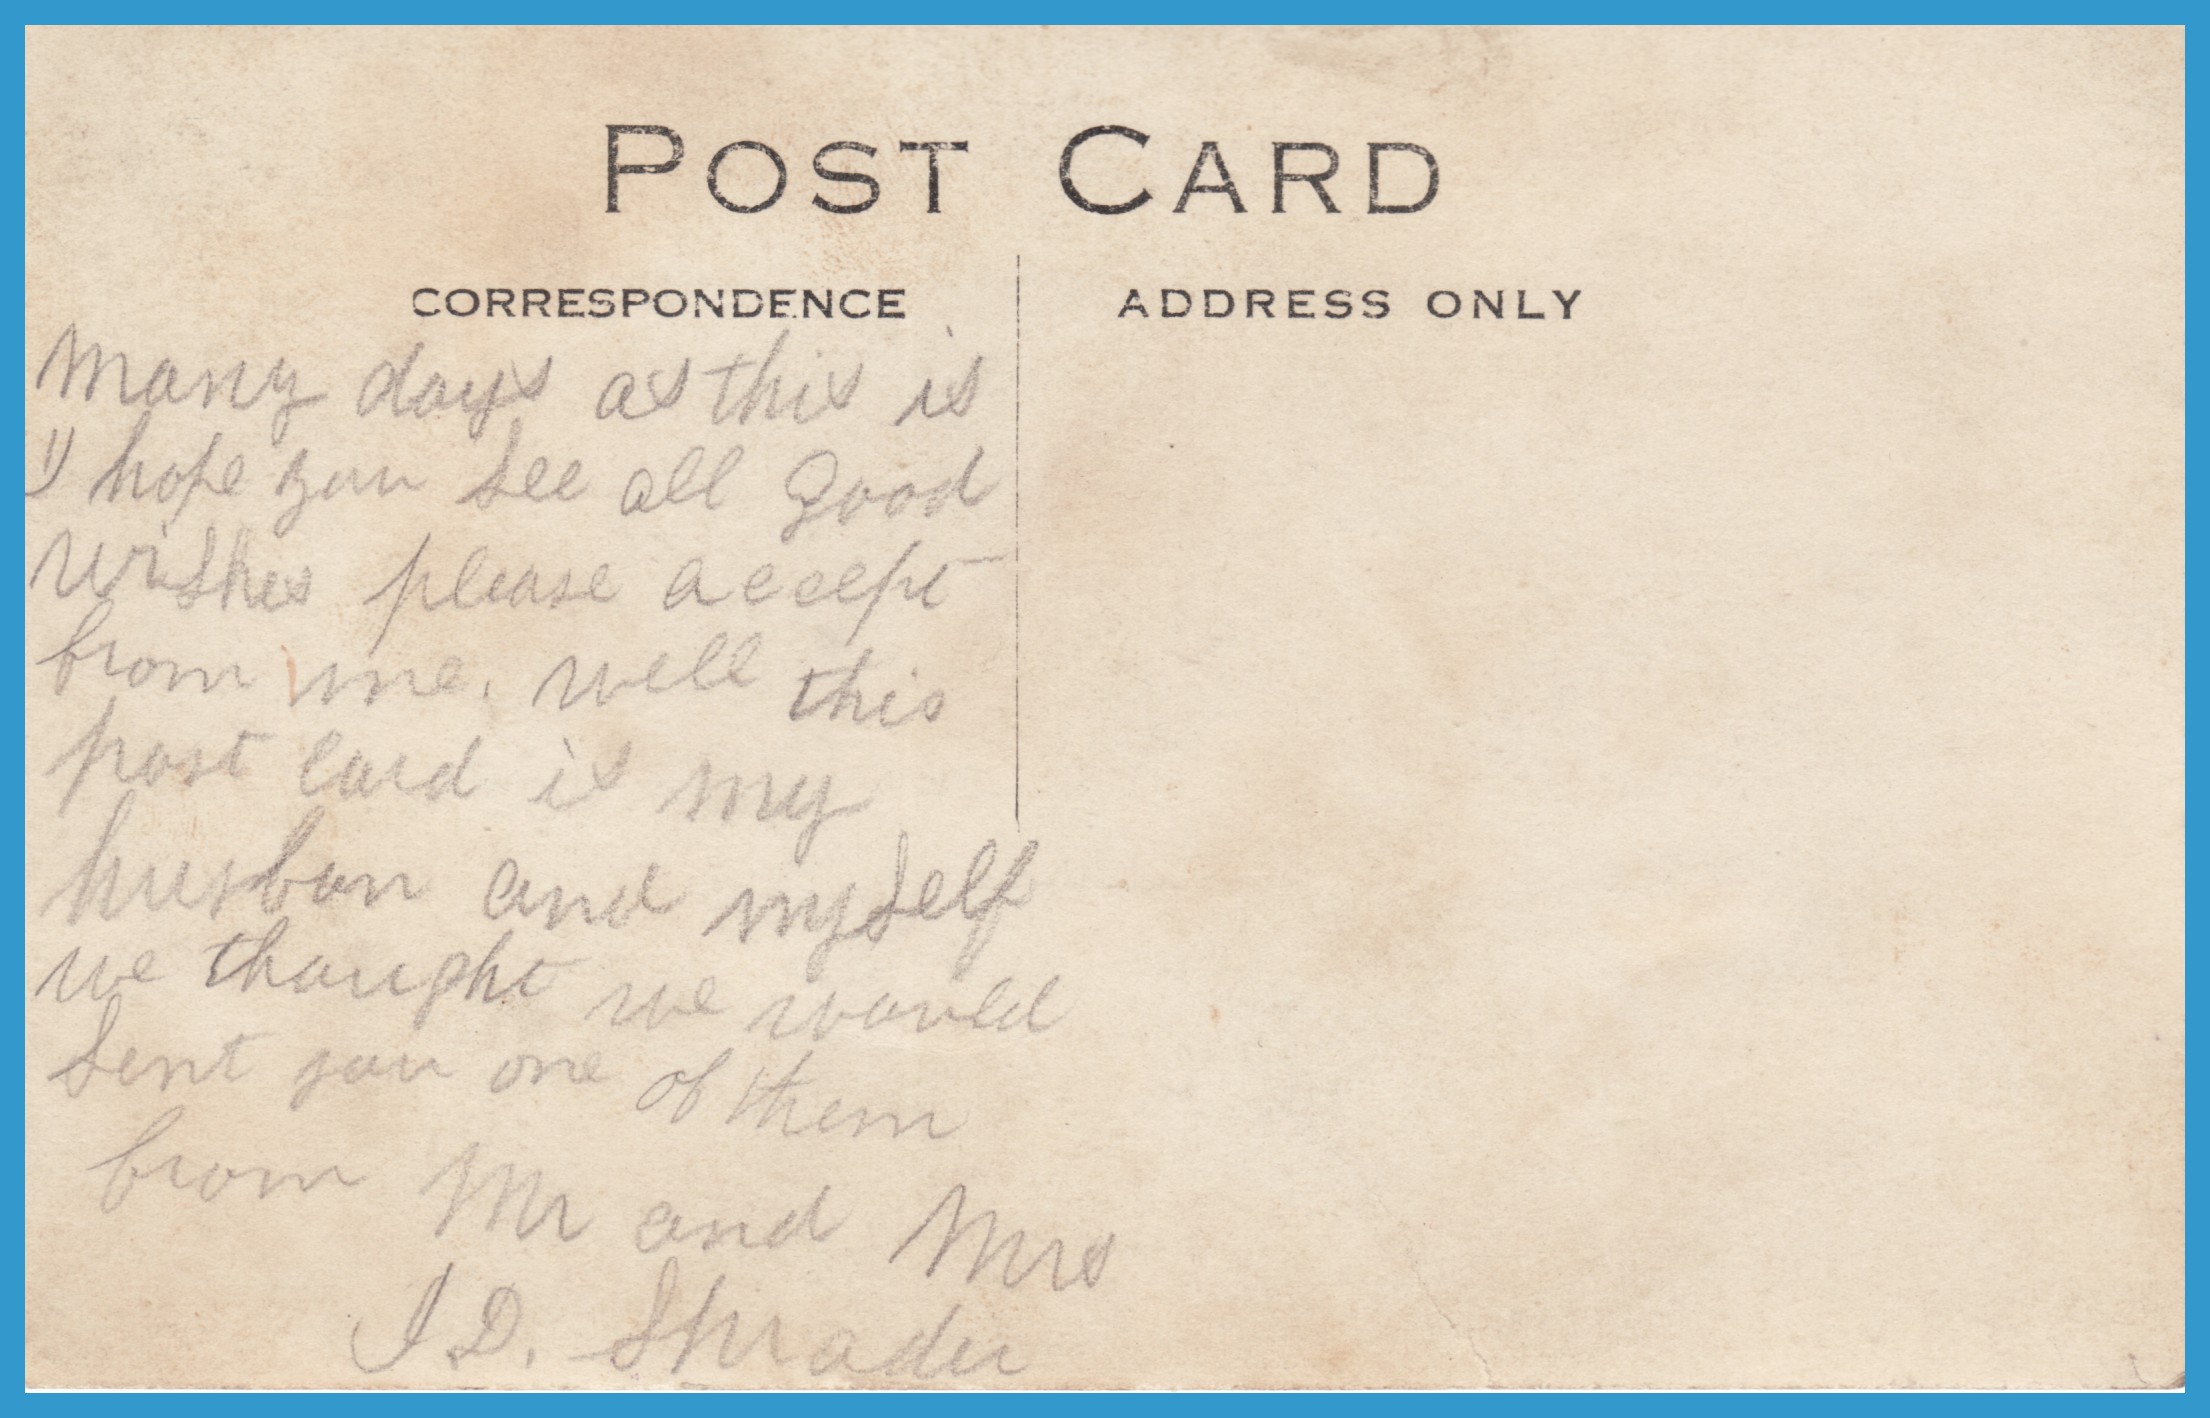 POST CARD
CORRESPONDENCE
ADDRESS ONLY
Many days as this is
I hope you see all good
wishes please accept
from me. well this
post card is my
husban and myself
we thought we would
sent you one of them
from Mr and Mrs
I. D. Shrader